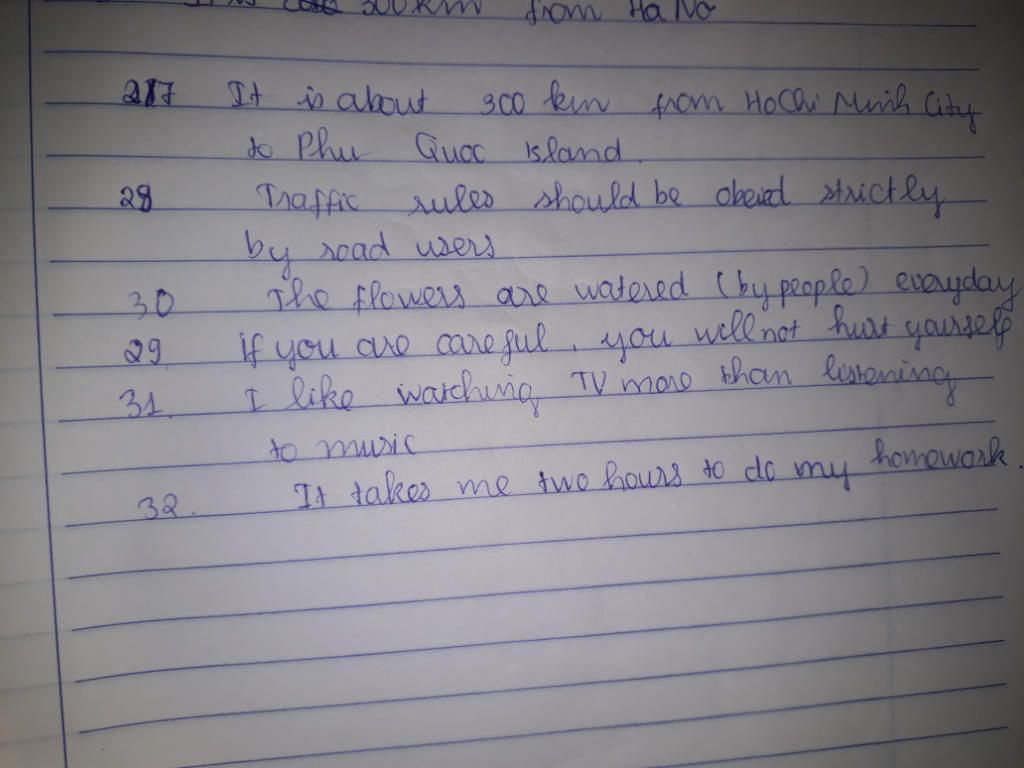 300km from Ha No
27 It is about 300 km from Ho Chi Minh City
to Phu Quoc island.
28 Traffic rules should be obeied strictly
by road users
30 The flowers are watered (by people) everyday
29. if you are careful, you will not hurt yourself
31. I like watching TV more than listening
to music
32. It takes me two hours to do my homework.